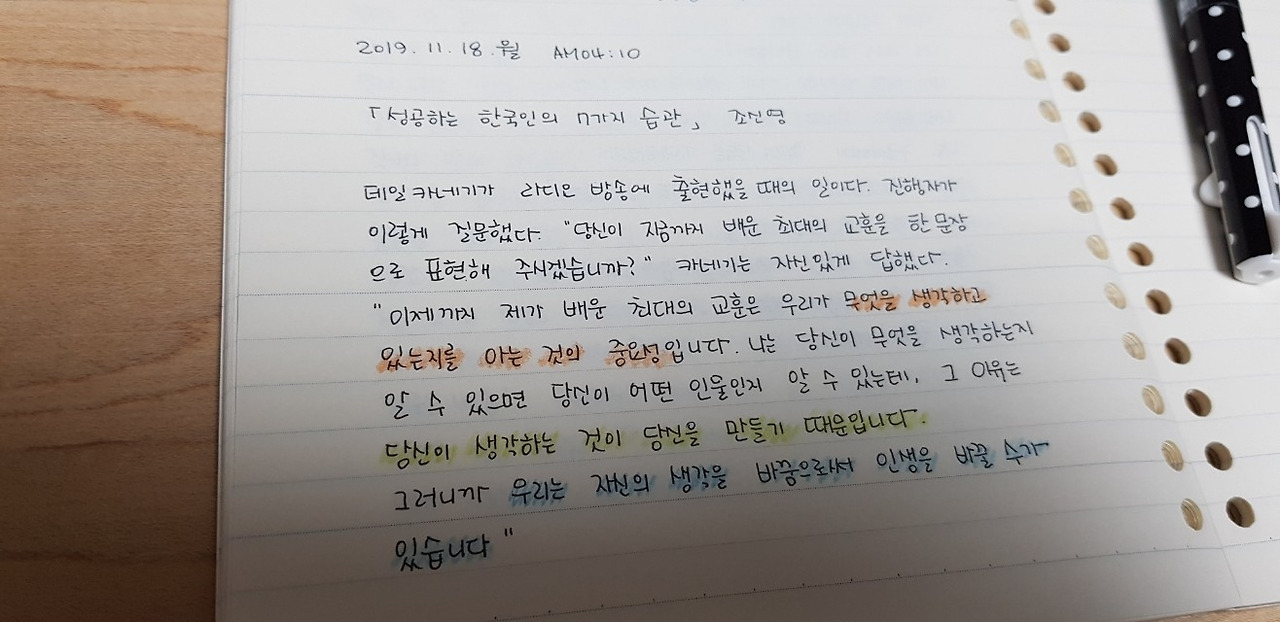 2019. 11. 18. 월 AM04:10
「성공하는 한국인의 7가지 습관」 조신영
데일카네기가 라디오 방송에 출현했을 때의 일이다. 진행자가
이렇게 질문했다. "당신이 지금까지 배운 최대의 교훈을 한 문장
으로 표현해 주시겠습니까?" 카네기는 자신있게 답했다.
"이제까지 제가 배운 최대의 교훈은 우리가 무엇을 생각하고
있는지를 아는 것의 중요성입니다. 나는 당신이 무엇을 생각하는지
알 수 있으면 당신이 어떤 인물인지 알 수 있는데, 그 이유는
당신이 생각하는 것이 당신을 만들기 때문입니다.
그러니까 우리는 자신의 생각을 바꿈으로써 인생을 바꿀 수가
있습니다"